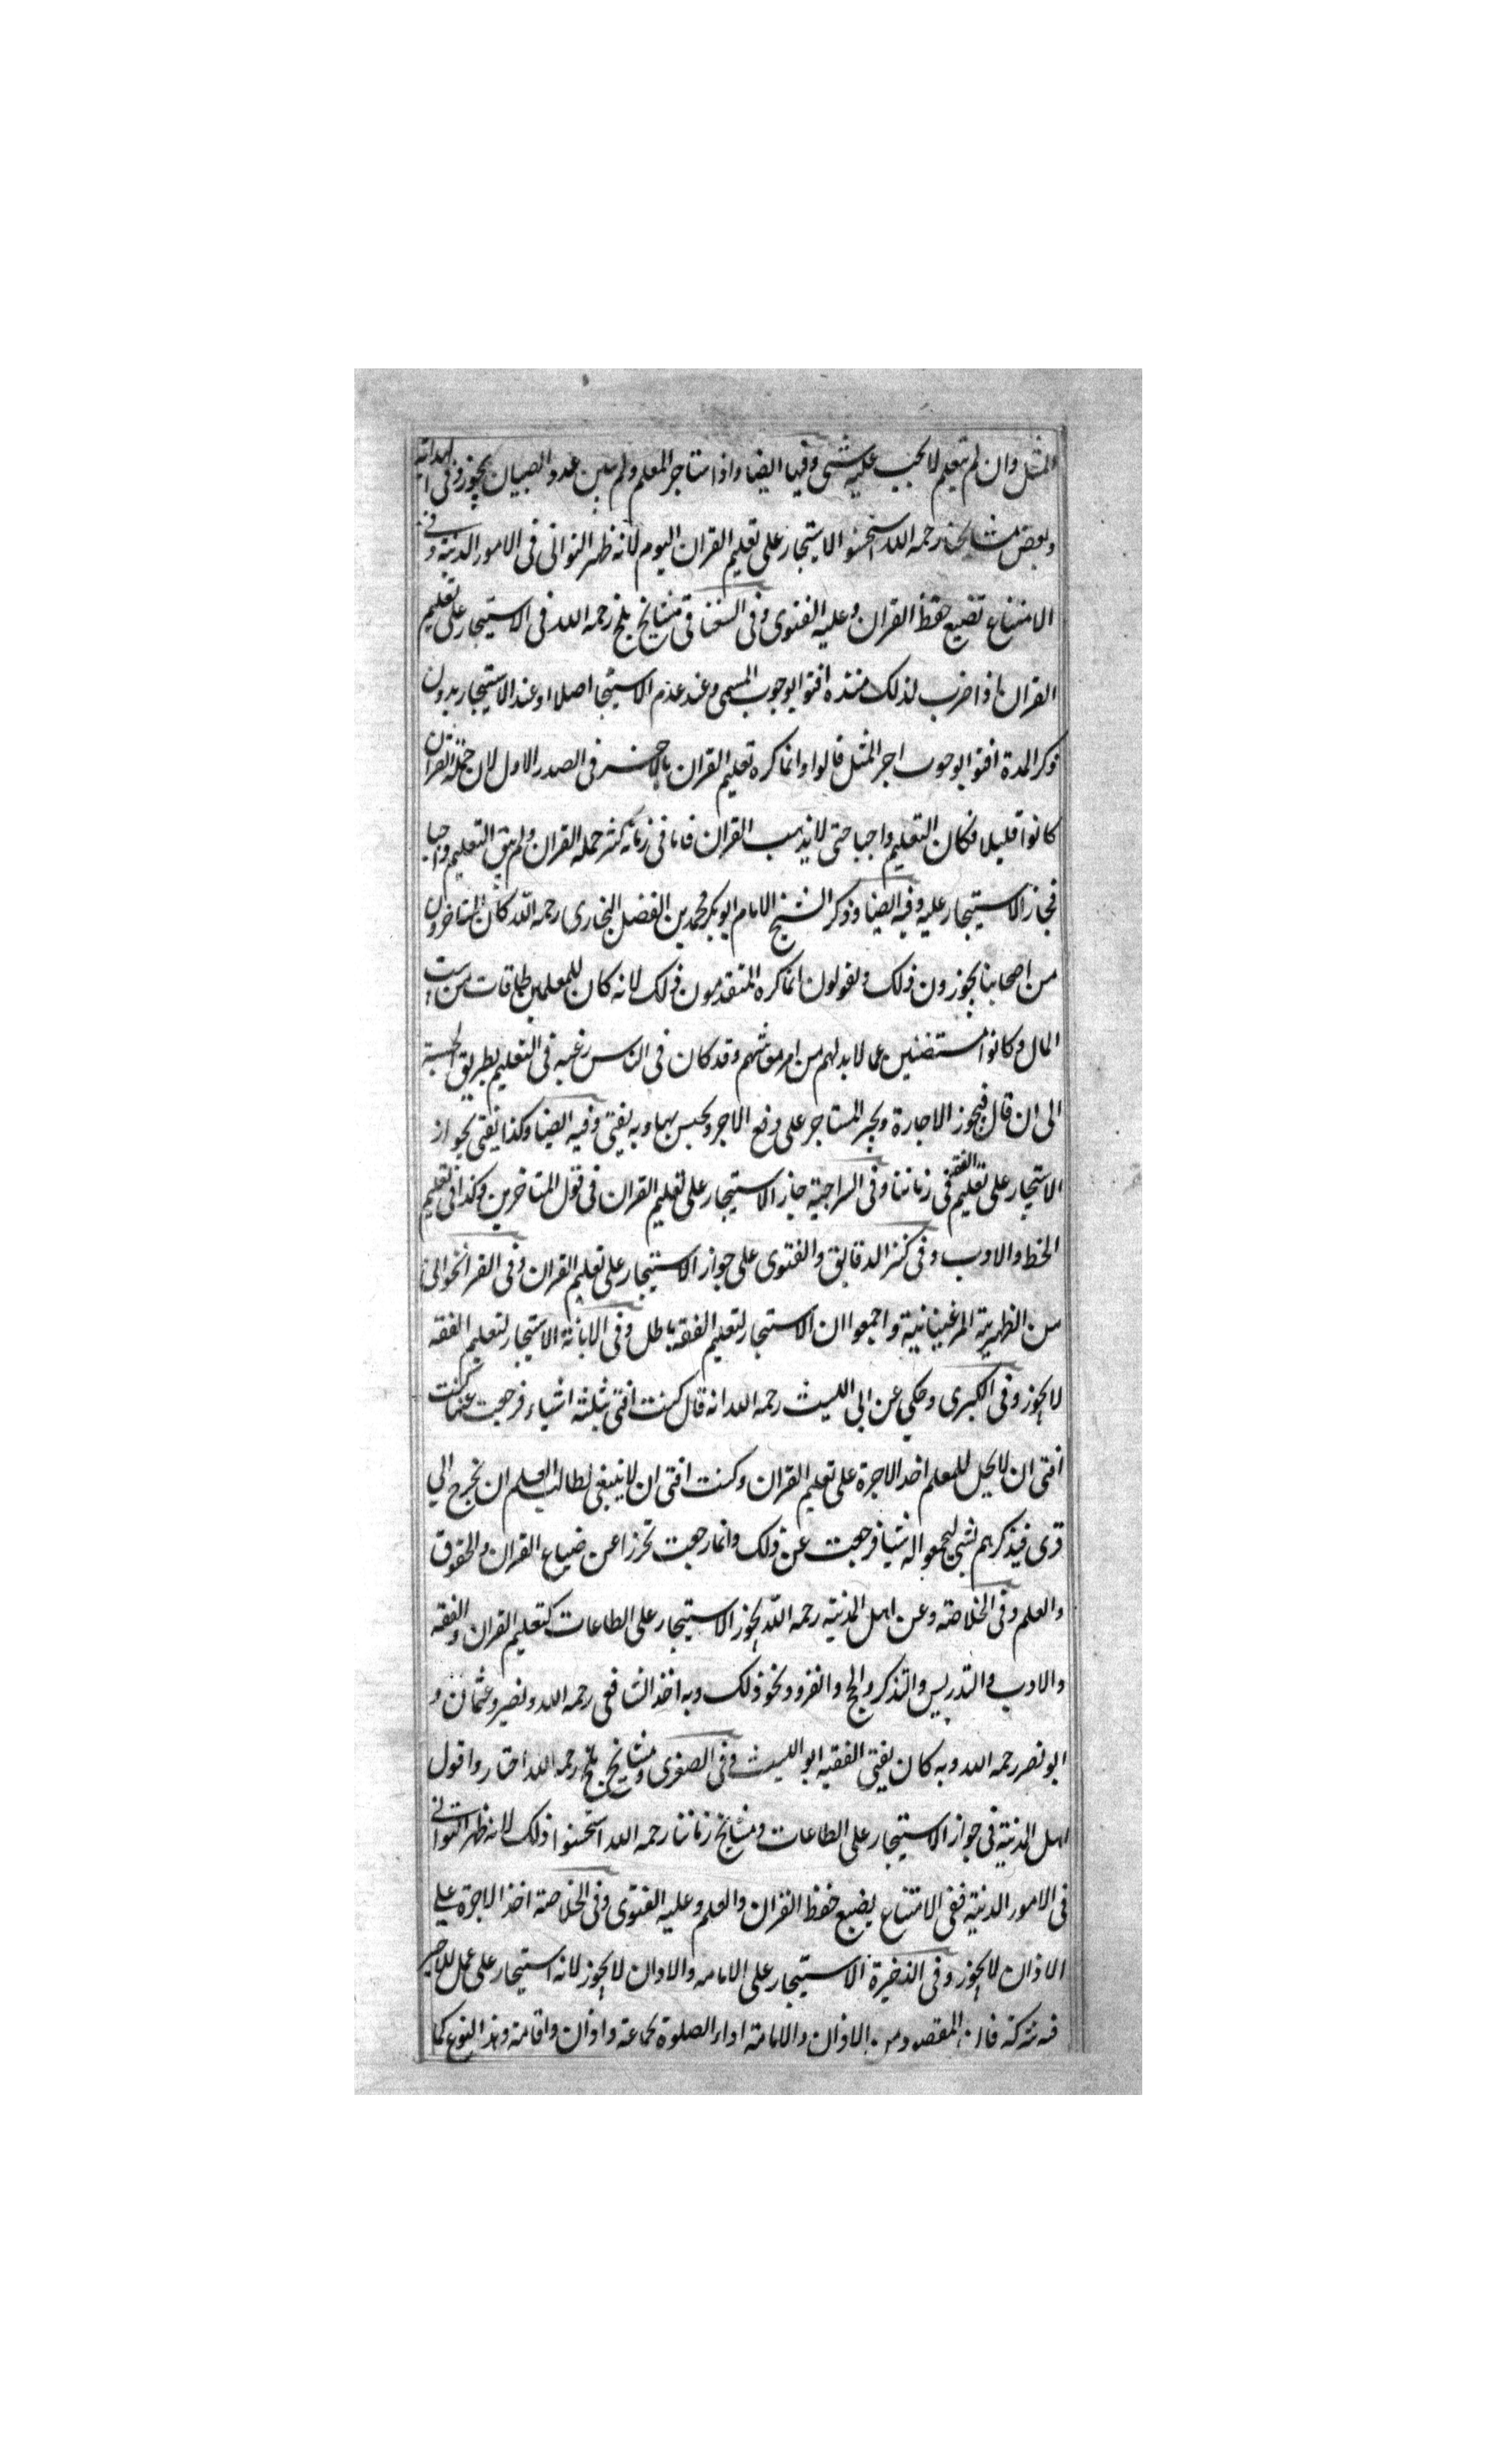 المثل وان لم يتعلم لا يجب عليه شى وفيها ايضا واذا استاجر المعلم ولم يبين عدد الصبيان يجوز وفى الهداية
وبعض مشايخنا رحمه الله استحسنوا الاستيجار على تعليم القران اليوم لانه ظهر التوانى فى الامور الدينية وفى
الامتناع تضيع حفظ القران وعليه الفتوى وفى السغناقى مشايخ بلخ رحمه الله فى الاستيجار على تعليم
القران اذا ضرب لذلك مدة افتوا بوجوب المسمى وعند عدم الاستيجا اصلا او عند الاستيجار بدون
ذكر المدة افتوا بوجوب اجر المثل قالوا وانما كره تعليم القران بالاجر فى الصدر الاول لان حملة القران
كانوا قليلا فكان التعليم واجبا حتى لا يذهب القران فاما فى زماننا كثر حملة القران ولم يبق التعليم واجبا
فجاز الاستيجار عليه وفيه ايضا وذكر الشيخ الامام ابو بكر محمد بن الفضل البخارى رحمه الله كان المتاخرون
من اصحابنا يجوزون ذلك ويقولون انما كره المتقدمون ذلك لانه كان للمعلمين من بيت
المال وكانوا مستغنين عما لا بد لهم من امر معاشهم وقد كان فى الناس رغبة فى التعليم بطريق الحسبة
الى ان قال فيجوز الاجارة ويجبر المستاجر على دفع الاجر ويحبس بها وبه يفتى وفيه ايضا وكذا يفتى بجواز
الاستيجار على تعليم الفقه فى زماننا وفى السراجية جاز الاستيجار على تعليم القران فى قول المتاخرين وكذا فى تعليم
الخط والادب وفى كنز الدقايق والفتوى على جواز الاستيجار على تعليم القران وفى القراخوانى
من الظهيرية المرغينانية واجمعوا ان الاستيجار لتعليم الفقه باطل وفى الابانة الاستيجار لتعليم الفقه
لا يجوز وفى الكبرى وحكي عن ابى الليث رحمه الله انه قال كنت افتى بثلثة اشياء فرجعت عنها كنت
افتى ان لا يحل للمعلم اخذ الاجرة على تعليم القران وكنت افتى ان لا ينبغى لطالب العلم ان يخرج الي
قرى فيذكرهم بشى ليجمعوا له شيئا فرجعت عن ذلك وانما رجعت تحرزا عن ضياع القران والحقوق
والعلم وفى الخلاصة وعن اهل المدينة رحمه الله يجوز الاستيجار على الطاعات كتعليم القران والفقه
والادب والتدريس والتذكر والحج والغزو ونحو ذلك وبه اخذ الشافعى رحمه الله ونصير وعثمان و
ابو نصر رحمه الله وبه كان يفتى الفقيه ابو الليث وفى الصغرى ومشايخ بلخ رحمه الله اختاروا قول
اهل المدينة فى جواز الاستيجار على الطاعات ومشايخ زماننا رحمه الله استحسنوا ذلك لانه ظهر التوانى
فى الامور الدينية ففى الامتناع يضيع حفظ القران والعلم وعليه الفتوى وفى الخلاصة اخذ الاجرة علي
الاذان لا يجوز وفى الذخيرة الاستيجار على الامامه والاذان لا يجوز لانه استيجار على عمل للاجير
فيه شركة فان المقصود من الاذان والامامة اداء الصلوة بجماعة واذان واقامة وهذا النوع كما